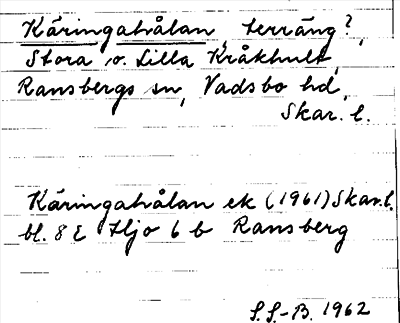 Käringahålan, terräng?,
Stora o. Lilla Kråkhult,
Ransbergs sn, Vadsbo hd,
Skar. l.
Käringahålan ek (1961) Skar. l.
bl. 8 E Hjo 6 b Ransberg
S.S.-B. 1962